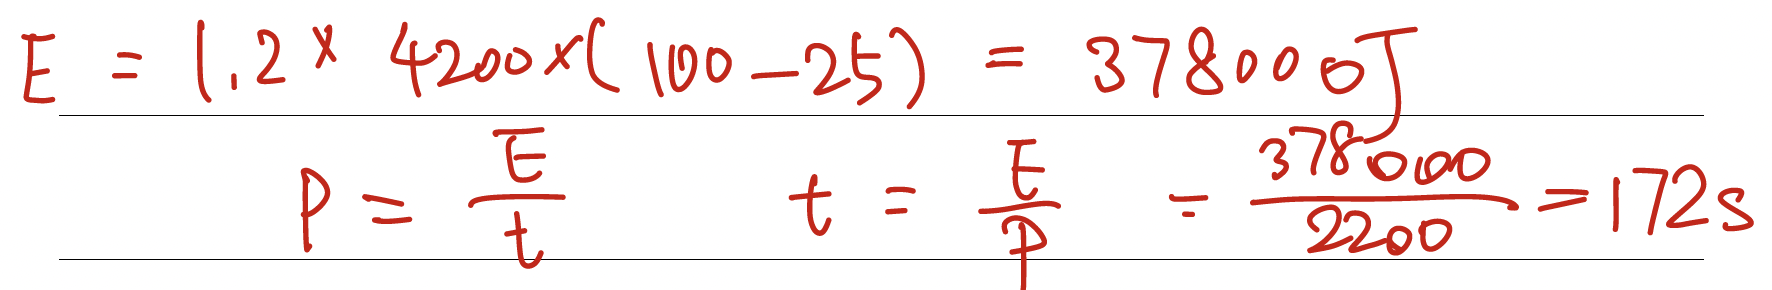 E = 1.2 × 4200 × (100 − 25) = 378000 J
P = E/t t = E/P = 378000/2200 = 172 s